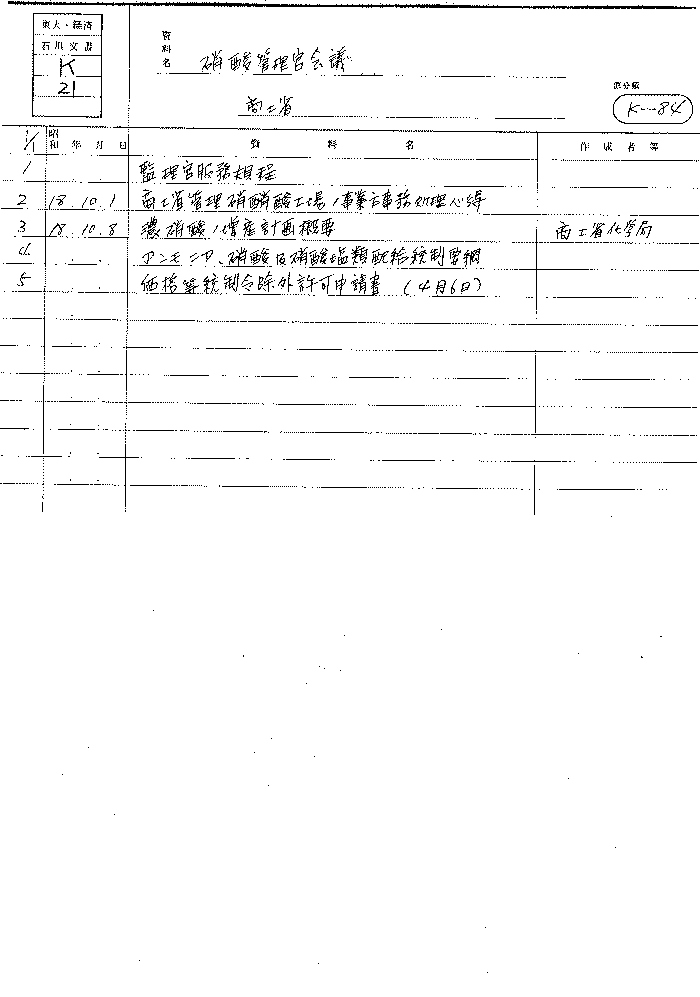 東大・経済
石川文書
K
21
資料名
硝酸管理官会議
商工省
原分類
K-84
1/1
昭和 年 月 日
資料名
作成者等
1 監理官服務規程
2 18.10.1 商工省管理硝酸工場ノ事業主事務処理心得
3 18.10.8 濃硝酸ノ増産計画概要 商工省化学局
4. アンモニア、硝酸及硝酸塩類配給統制要綱
5 価格等統制令除外許可申請書 (4月6日)